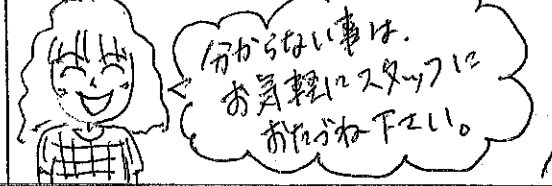 分からない事は、
お気軽にスタッフに
おたづね下さい。